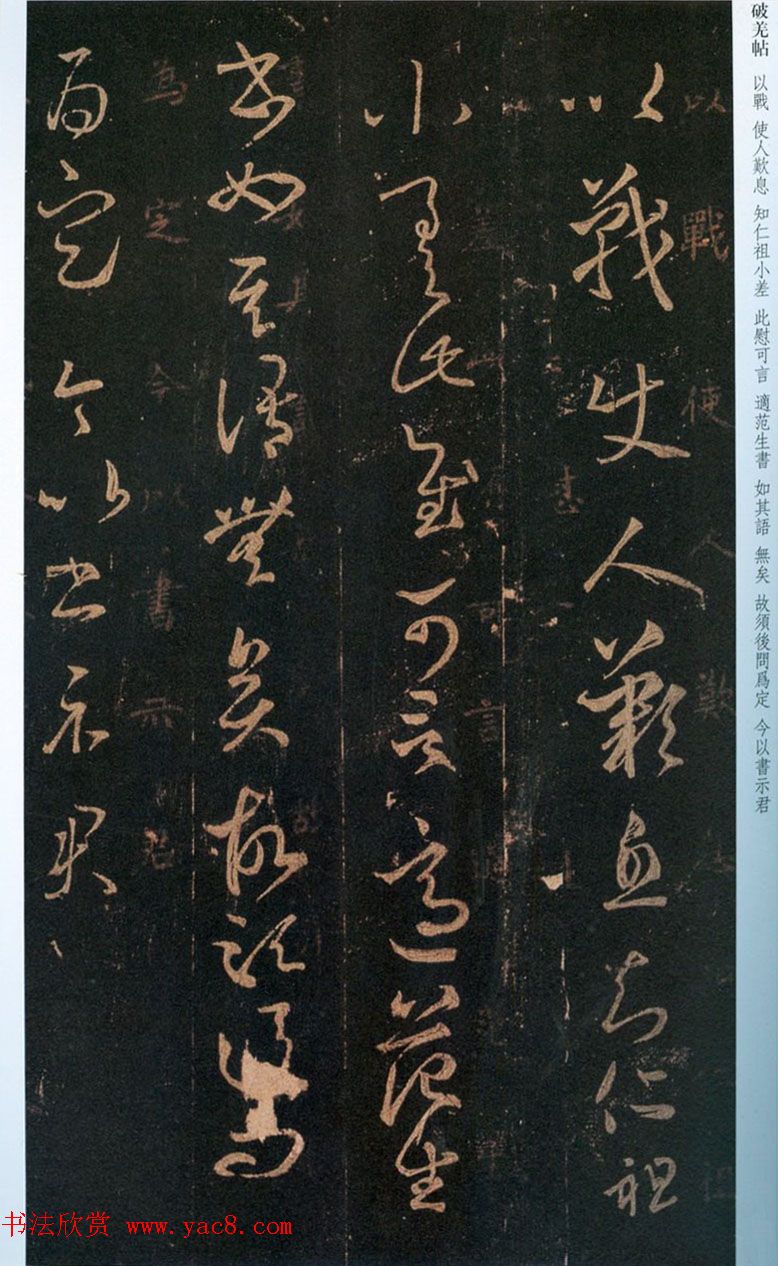 破羌帖 以戰 使人歎息 知仁祖小差 此慰可言 適范生書 如其語 無矣 故須後問爲定 今以書示君
以戰使人歎息知仁祖
小差此慰可言適范生
書如其語無矣故須後問
為定今以書示君
书法欣赏 www.yac8.com